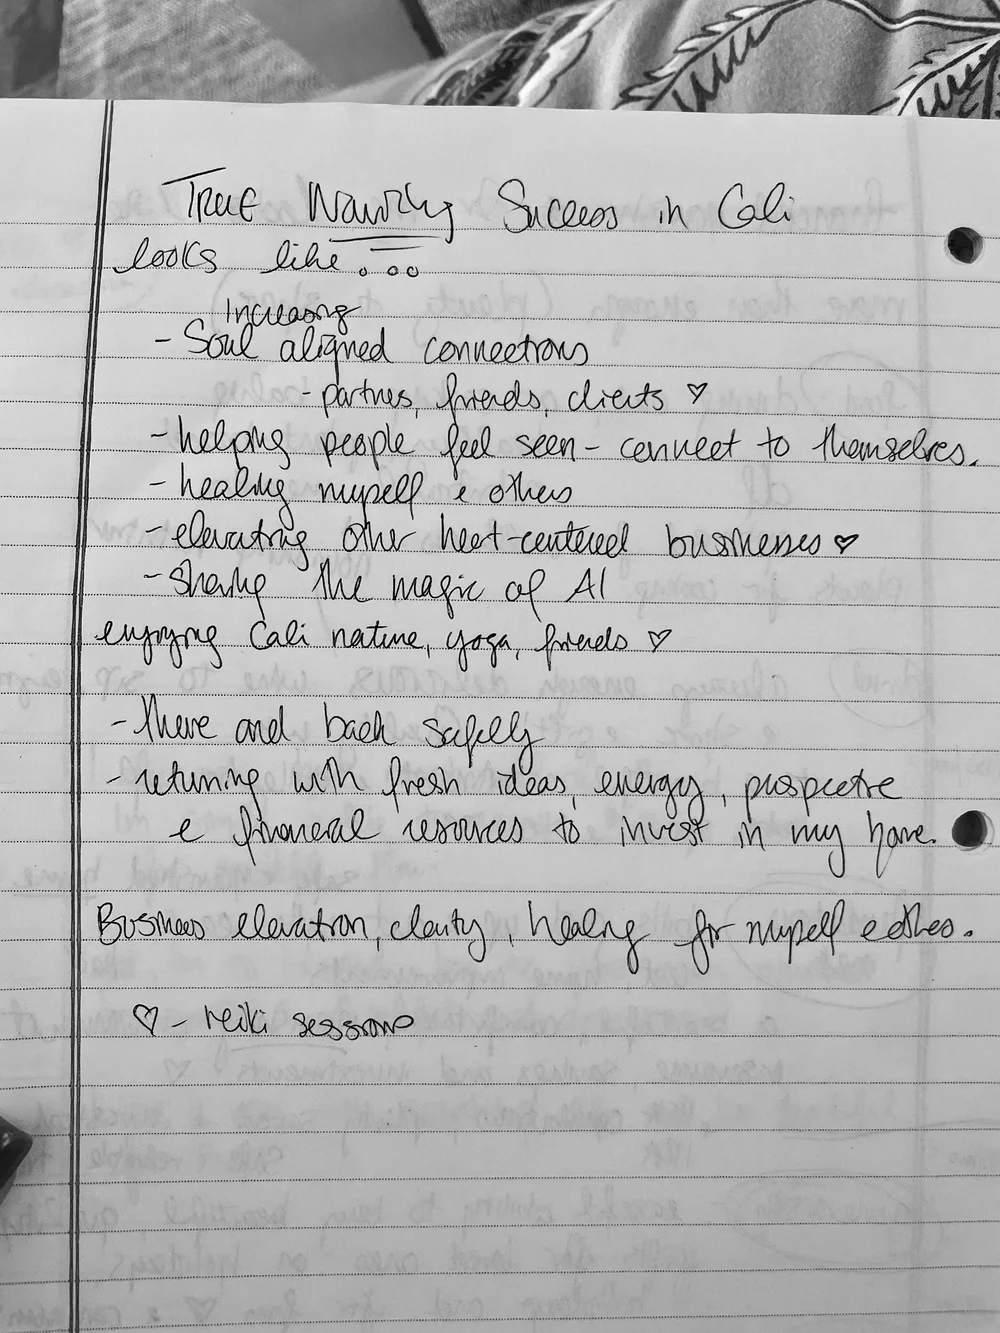 True Success in Cali
looks like...
Increasing
- Soul aligned connections
- partners, friends, clients ♡
- helping people feel seen - connect to themselves.
- healing myself & others
- elevating other heart-centered businesses ♡
- sharing the magic of AI
enjoying Cali nature, yoga, friends ♡
- there and back safely
- returning with fresh ideas, energy, perspective
& financial resources to invest in my home.
Business elevation, clarity, healing for myself & others.
♡ - reiki sessions